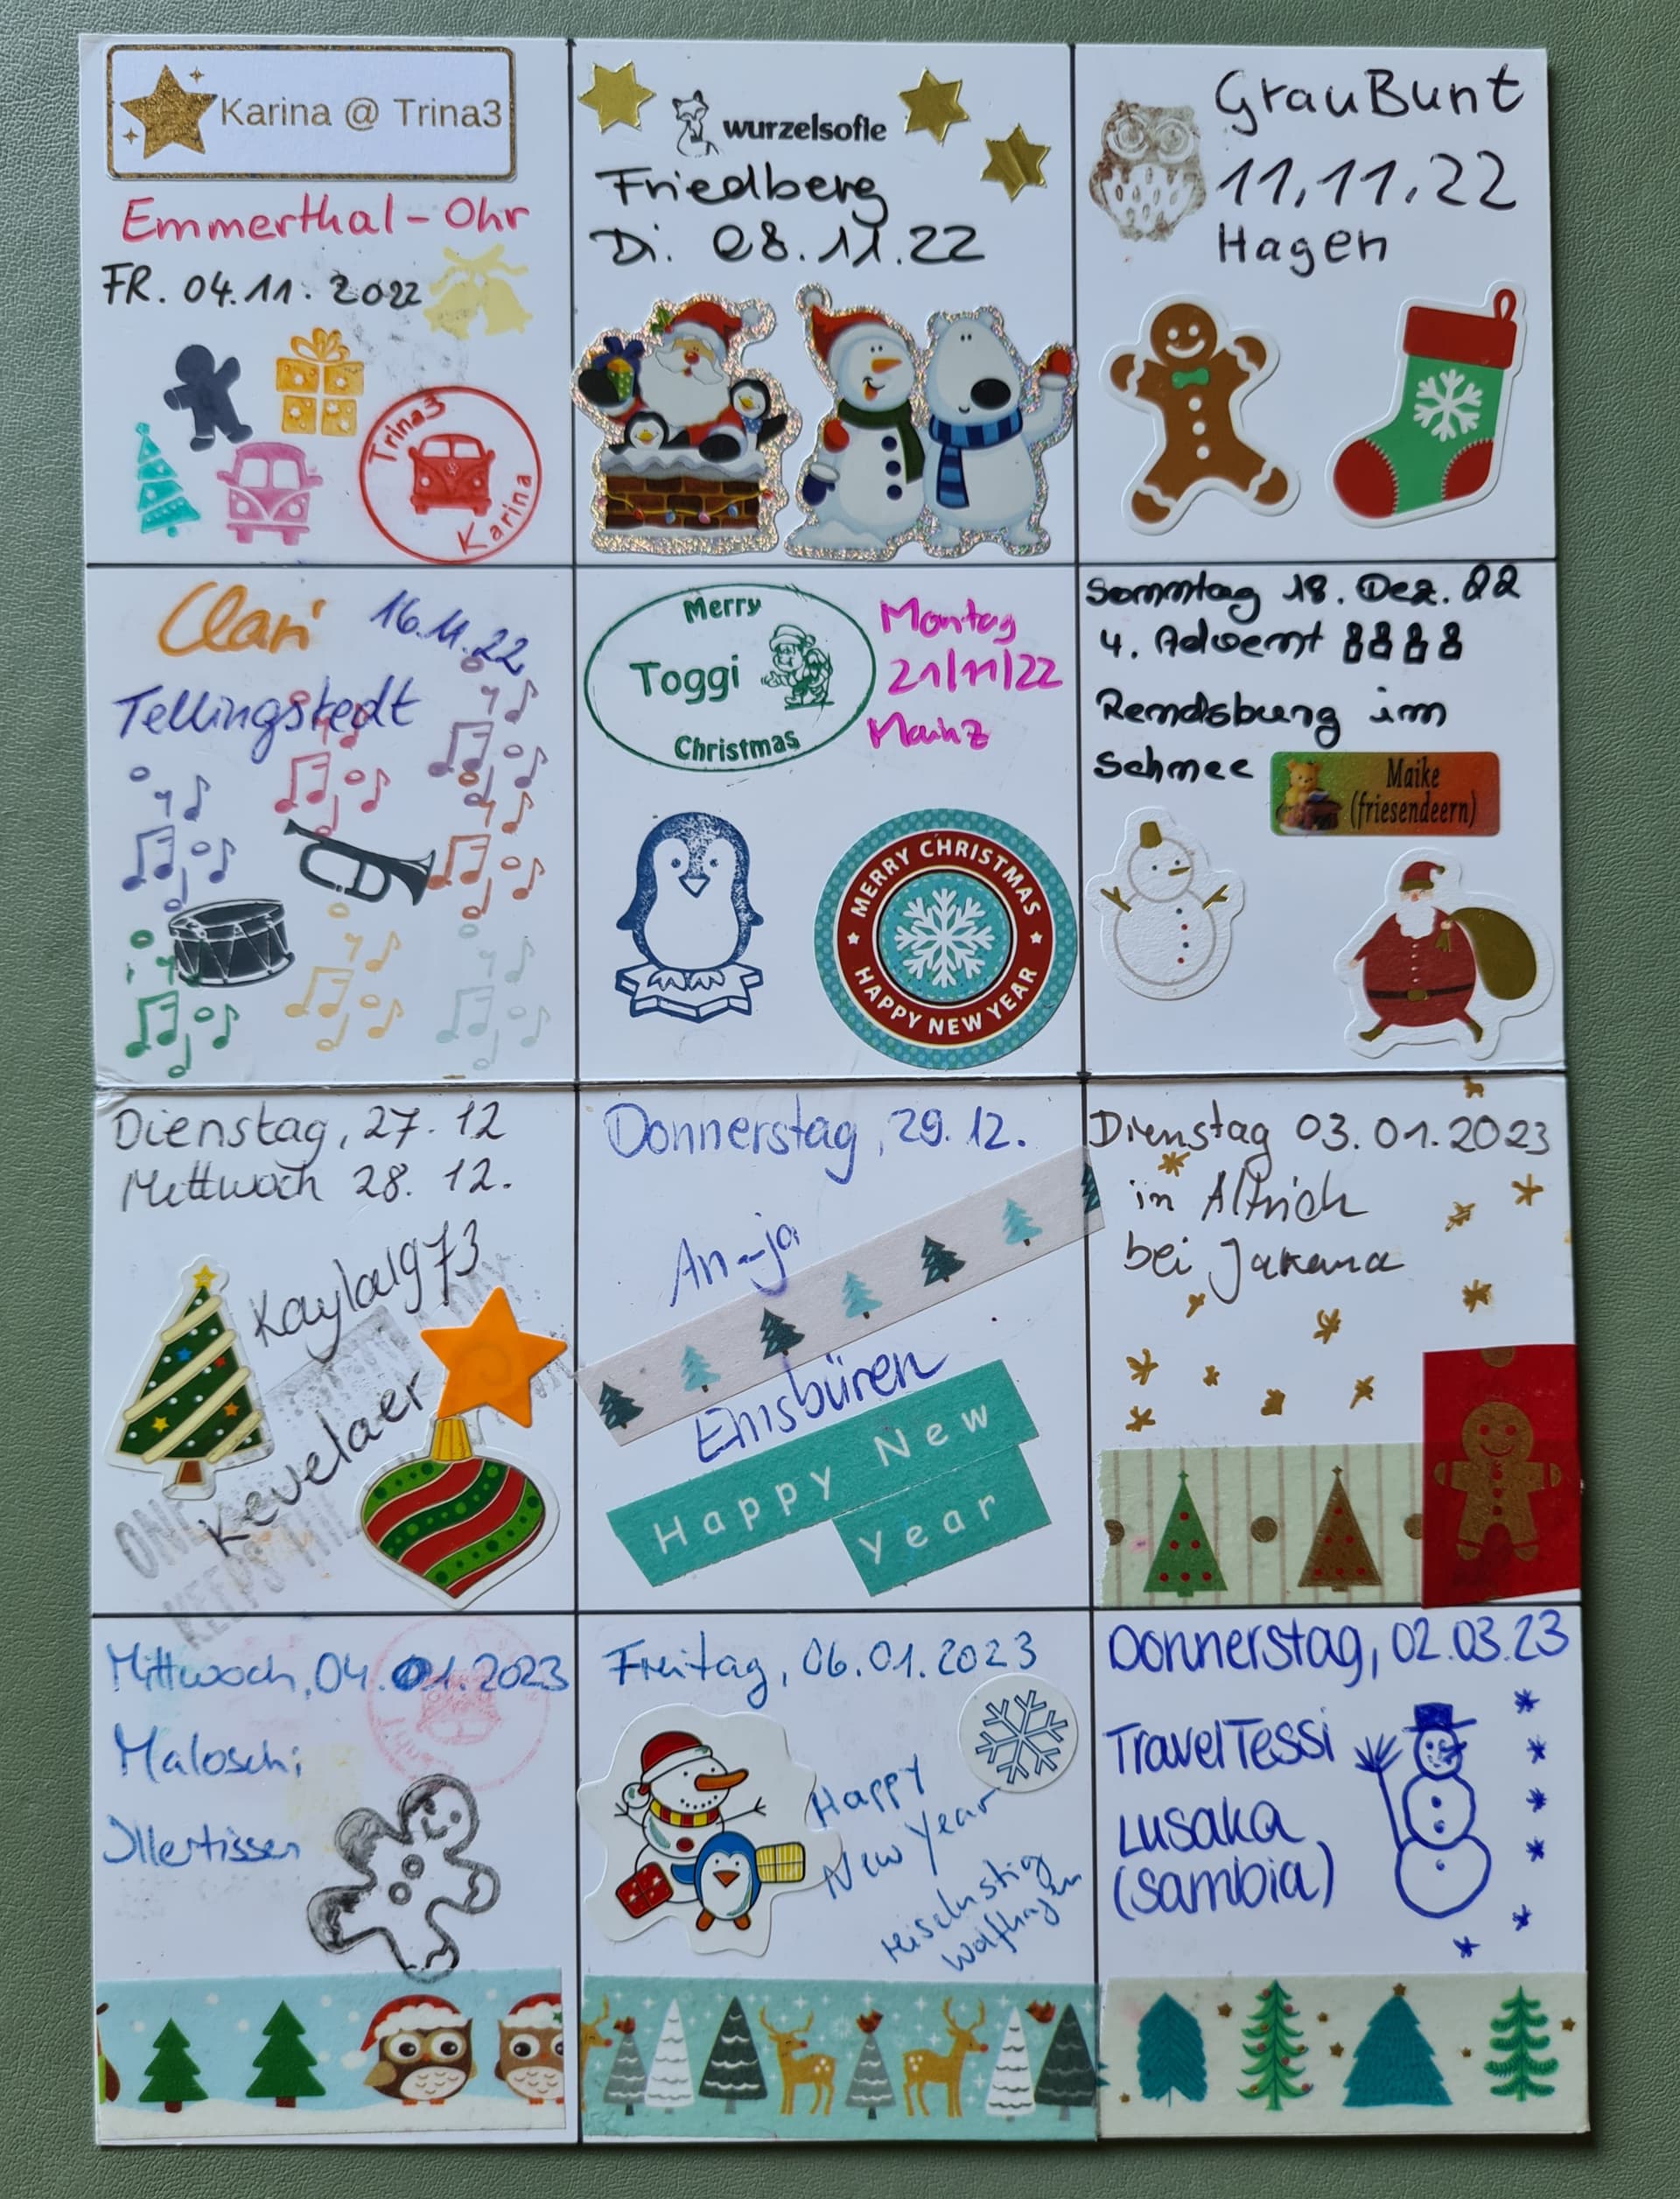 Karina @ Trina3
Emmerthal-Ohr
FR. 04.11.2022
Trina3
Karina
wurzelsofie
Friedberg
Di. 08.11.22
GrauBunt
11.11.22
Hagen
Clari 16.11.22
Tellingstedt
Merry
Toggi
Christmas
Montag
21/11/22
Mainz
MERRY CHRISTMAS
HAPPY NEW YEAR
Sonntag 18. Dez. 22
4. Advent
Rendsburg im
Schnee
Maike
(friesendeern)
Dienstag, 27. 12
Mittwoch 28. 12.
Kayla1973
Kevelaer
ONE
KEEPS
Donnerstag, 29. 12.
An-ja
Emsbüren
Happy New
Year
Dienstag 03.01.2023
in Altrich
bei Jakana
Mittwoch, 04.01.2023
Maloschi
Illertissen
Freitag, 06.01.2023
Happy
New Year
Wolfhagen
Donnerstag, 02.03.23
TravelTessi
Lusaka
(Sambia)